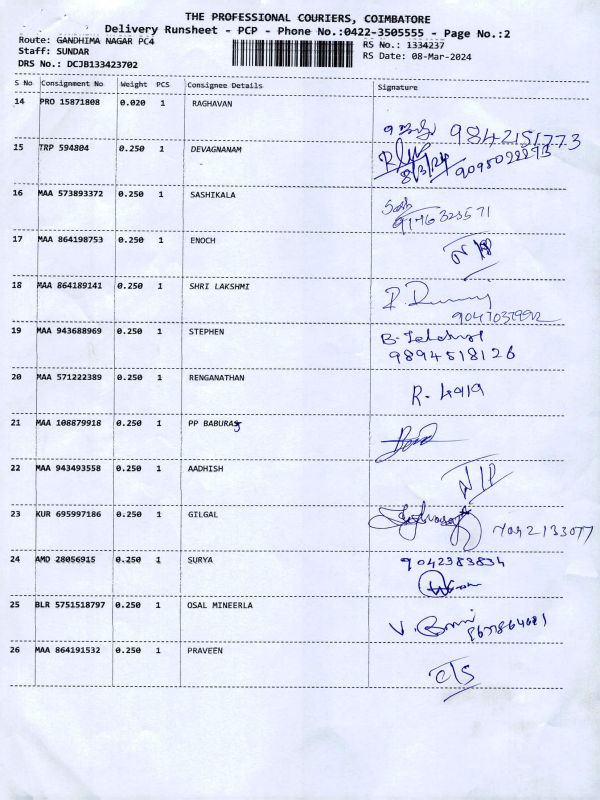 THE PROFESSIONAL COURIERS, COIMBATORE
Delivery Runsheet - PCP - Phone No.:0422-3505555 - Page No.:2
Route: GANDHIMA NAGAR PC4 RS No.: 1334237
Staff: SUNDAR RS Date: 08-Mar-2024
DRS No.: DCJB133423702
S No Consignment No Weight PCS Consignee Details Signature
14 PRO 15871808 0.020 1 RAGHAVAN
9842151773
15 TRP 594804 0.250 1 DEVAGNANAM
8/3/24
16 MAA 573893372 0.250 1 SASHIKALA
9176323571
17 MAA 864198753 0.250 1 ENOCH
18 MAA 864189141 0.250 1 SHRI LAKSHMI
19 MAA 943688969 0.250 1 STEPHEN
9894518126
20 MAA 571222389 0.250 1 RENGANATHAN
R.
21 MAA 108879918 0.250 1 PP BABURAJ
22 MAA 943493558 0.250 1 AADHISH
N/P
23 KUR 695997186 0.250 1 GILGAL
7042133077
24 AMD 28056915 0.250 1 SURYA
9042383834
25 BLR 5751518797 0.250 1 OSAL MINEERLA
V.
26 MAA 864191532 0.250 1 PRAVEEN
C/S